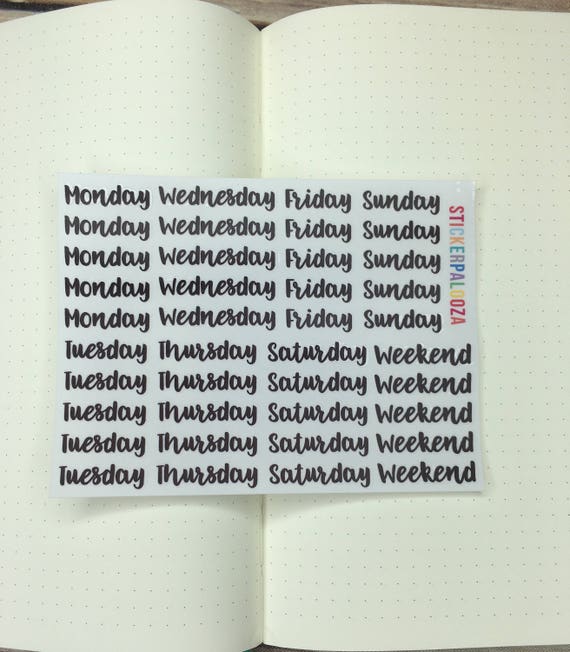 Monday Wednesday Friday Sunday
Monday Wednesday Friday Sunday
Monday Wednesday Friday Sunday
Monday Wednesday Friday Sunday
Monday Wednesday Friday Sunday
Tuesday Thursday Saturday Weekend
Tuesday Thursday Saturday Weekend
Tuesday Thursday Saturday Weekend
Tuesday Thursday Saturday Weekend
Tuesday Thursday Saturday Weekend
STICKERPALOOZA